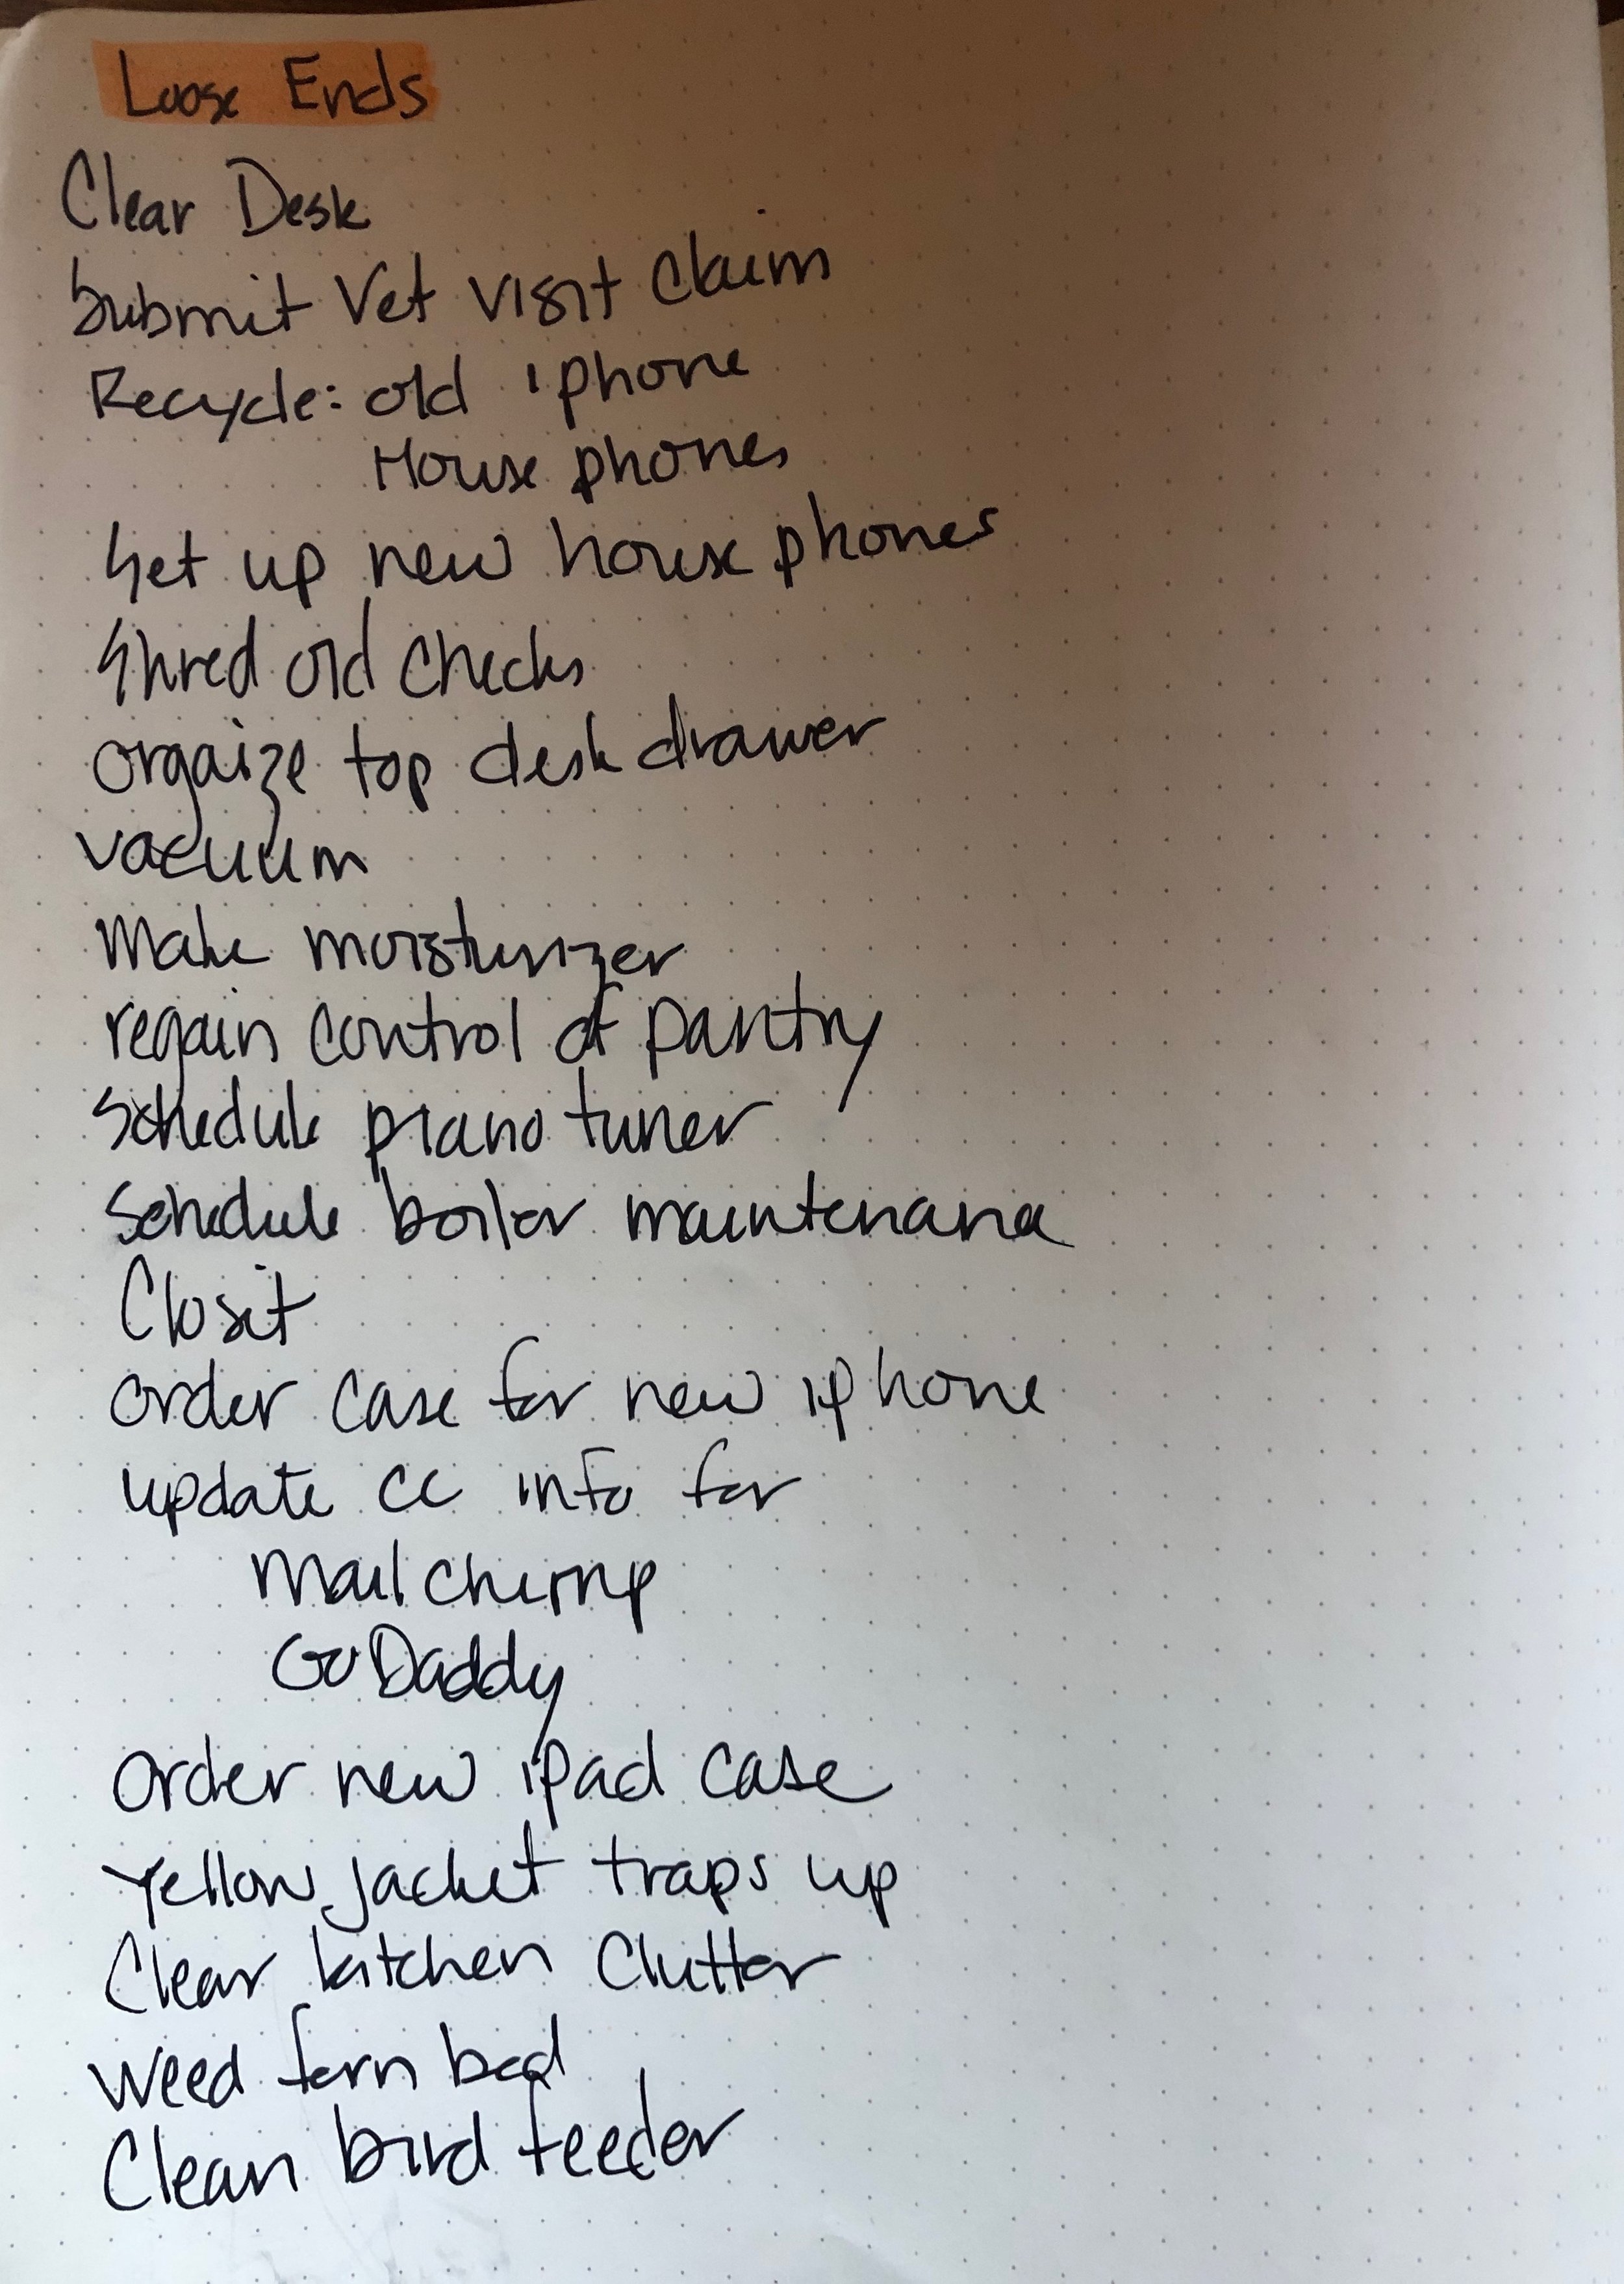 Loose Ends
Clear Desk
Submit Vet visit claim
Recycle: old iphone
House phones
Set up new house phones
Shred old checks
orgaize top desk drawer
vacuum
Make moisturizer
regain control of pantry
Schedule piano tuner
Schedule boiler maintenance
Closit
order case for new iphone
update cc info for
Mailchimp
GoDaddy
Order new ipad case
Yellow jacket traps up
Clear kitchen Clutter
Weed fern bed
Clean bird feeder